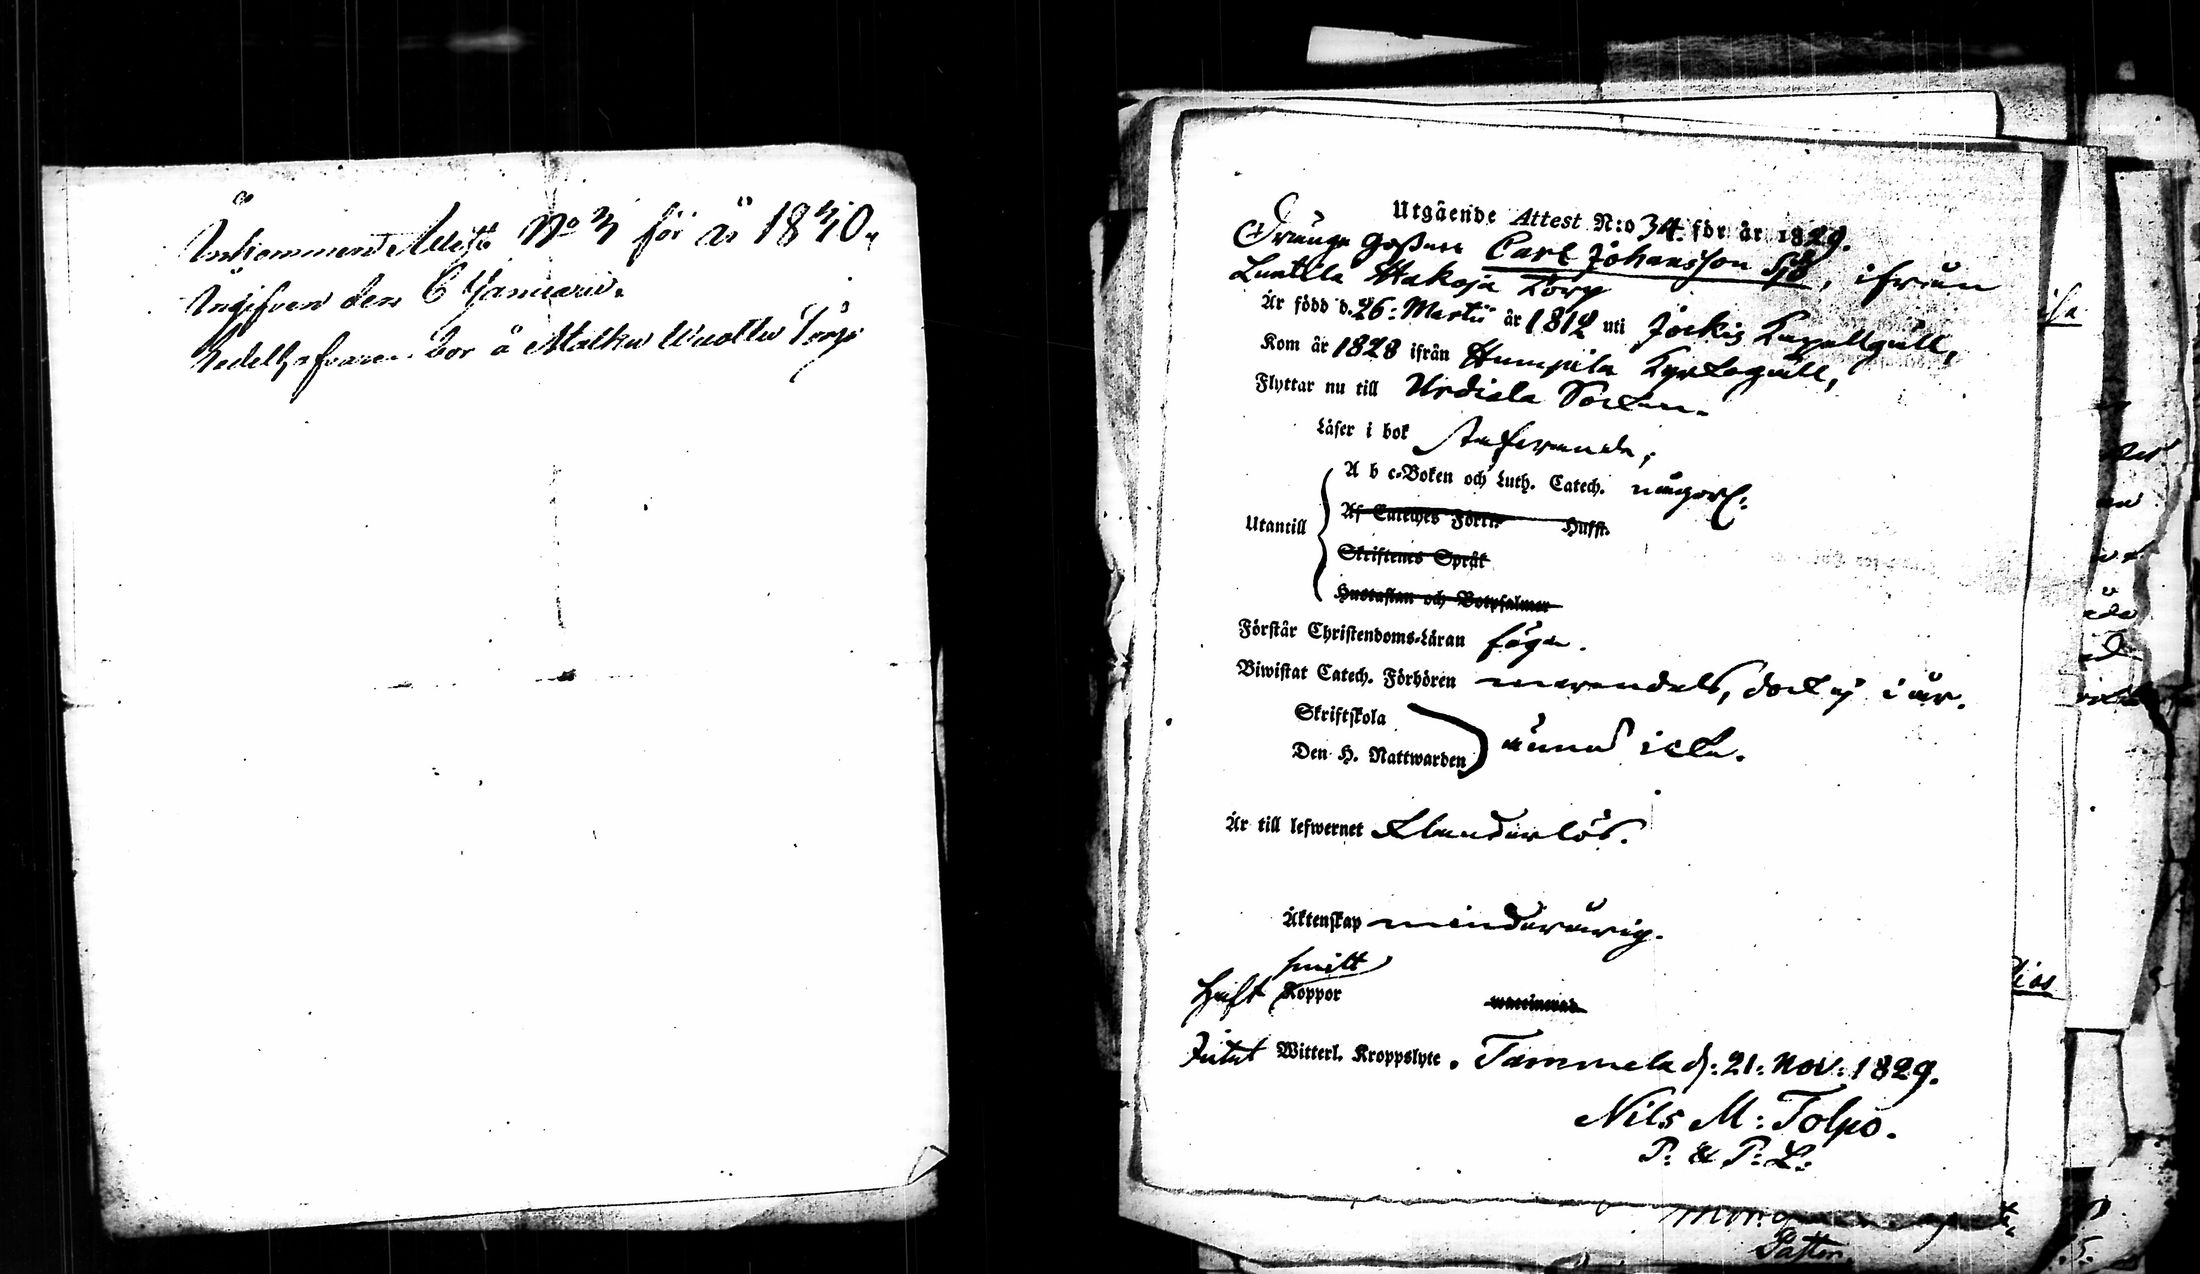 Inkommend Attest No 3 för år 1830.
Ingifven den 6 Januarii.
bor å Matku Torp
Utgående Attest N:o 34. för år 1829.
Drängs Gossen Carl Johansson Sjö, ifrån
Hakoja Torp
Är född d. 26: Martii år 1812 uti Jockis Kapellgäll,
Kom år 1828 ifrån Humpila Kyrkogäll,
Flyttar nu till Urdiala Socken.
Läser i bok stafvande,
A b c-Boken och Luth. Catech. någorl:
Af Cateches Förkl. Hufst.
Utantill
Skriftenes Språk
Hustaflan och Botpsalmer
Förstår Christendoms-Läran föga.
Biwistat Catech. Förhören dock ej i år.
Skriftskola
Den H. Nattwarden ännu icke.
Är till lefwernet klanderlös.
Äktenskap minderårig.
Haft Koppor vaccinerad
Intet Witterl. Kroppslyte. Tammela d: 21: Nov: 1829.
Nils M: Tolpo.
P: & P: L: